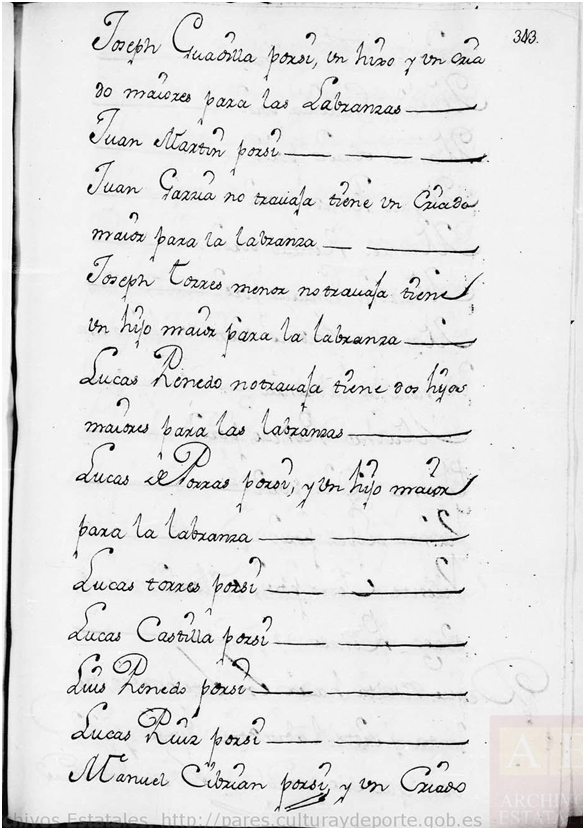 343.
Joseph Guadilla porsi, un hixo y un cria
do maiores para las Labranzas
Juan Martin porsi
Juan Garzia no travaja tiene un Criado
maior para la labranza
Joseph torres menor no travaja tiene
un hijo maior para la labranza
Lucas Renedo no travaja tiene dos hijos
maiores para las labranzas
Lucas de Porras porsi, y un hijo maior
para la labranza
Lucas torres porsi
Lucas Castilla porsi
Luis Renedo porsi
Lucas Ruiz porsi
Manuel Cibrian porsi, y un Criado
hivos Estatales, http://pares.culturaydeporte.gob.es
ARCHIVO
ESTATA